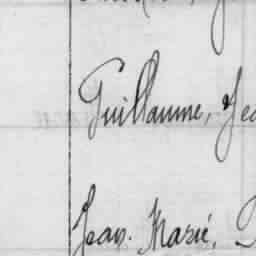 Guillaume, Jea
Jean. Marie,